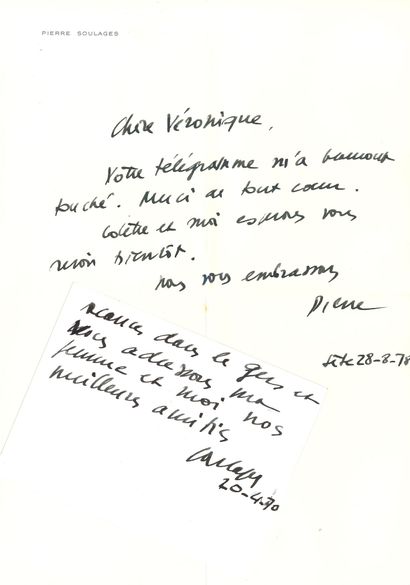 PIERRE SOULAGES
Chère Véronique,
Votre télégramme m'a beaucoup
touché. Merci de tout cœur.
Colette et moi espérons vous
revoir bientôt.
nous vous embrassons
Pierre
Sète 28-8-78
vacances dans le gers et
vous adressons ma
femme et moi nos
meilleures amitiés
20-4-70